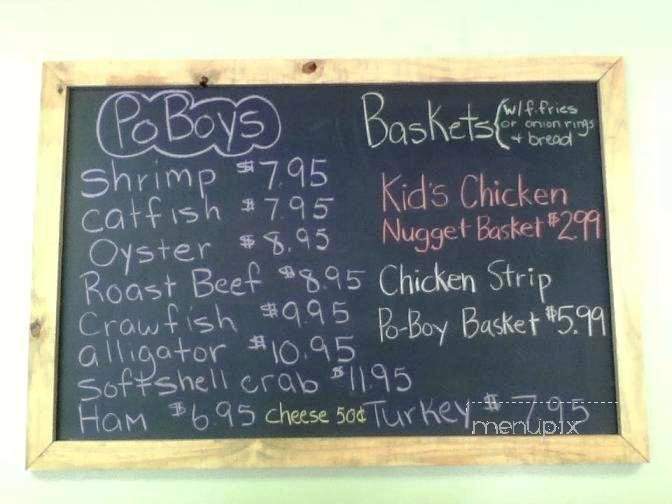 PoBoys
Shrimp $7.95
catfish $7.95
Oyster $8.95
Roast Beef $8.95
Crawfish $9.95
alligator $10.95
Softshell crab $11.95
Ham $6.95 cheese 50¢ Turkey $7.95
Baskets
w/f.fries
or onion rings
+ bread
Kid's Chicken
Nugget Basket $2.99
Chicken Strip
Po-Boy Basket $5.99
menupix